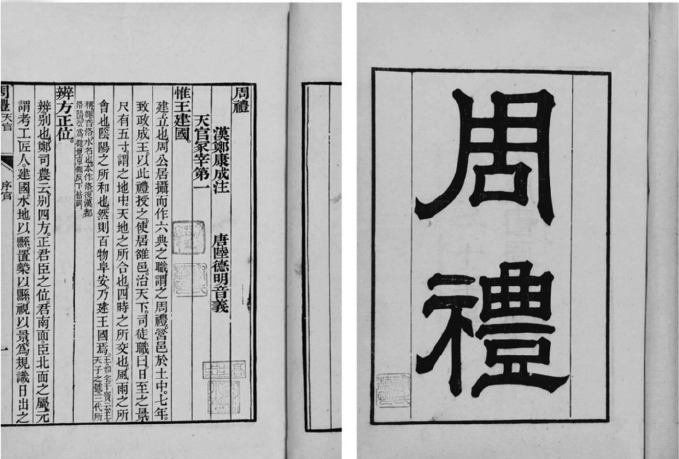 周禮
周禮
漢鄭康成注 唐陸德明音義
天官冢宰第一
惟王建國
建立也周公居攝而作六典之職謂之周禮營邑於土中七年
致政成王以此禮授之使居雒邑治天下司徒職曰日至之景
尺有五寸謂之地中天地之所合也四時之所交也風雨之所
會也陰陽之所和也然則百物阜安乃建王國焉
天子之號三代所
辨方正位
辨別也鄭司農云別四方正君臣之位君南面臣北面之屬元
謂考工匠人建國水地以縣置槷以縣視以景爲規識日出之
周禮 天官 序官 一